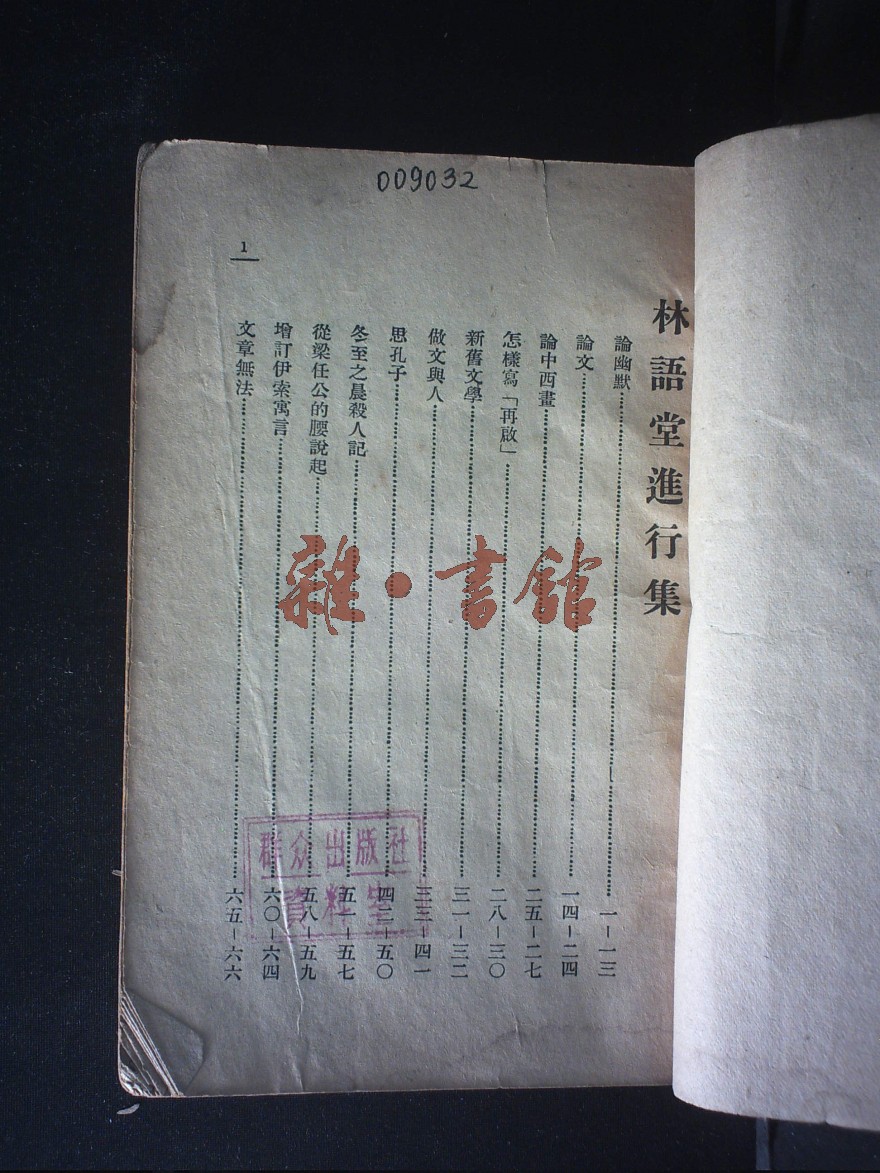 009032
林語堂進行集
論幽默……一－一三
論文……一四－二四
論中西畫……二五－二七
怎樣寫「再啟」……二八－三〇
新舊文學……三一－三二
做文與人……三三－四一
思孔子……四二－五〇
冬至之晨殺人記……五一－五七
從梁任公的腰說起……五八－五九
增訂伊索寓言……六〇－六四
文章無法……六五－六六
1
雜·書館
群众出版社
資料室